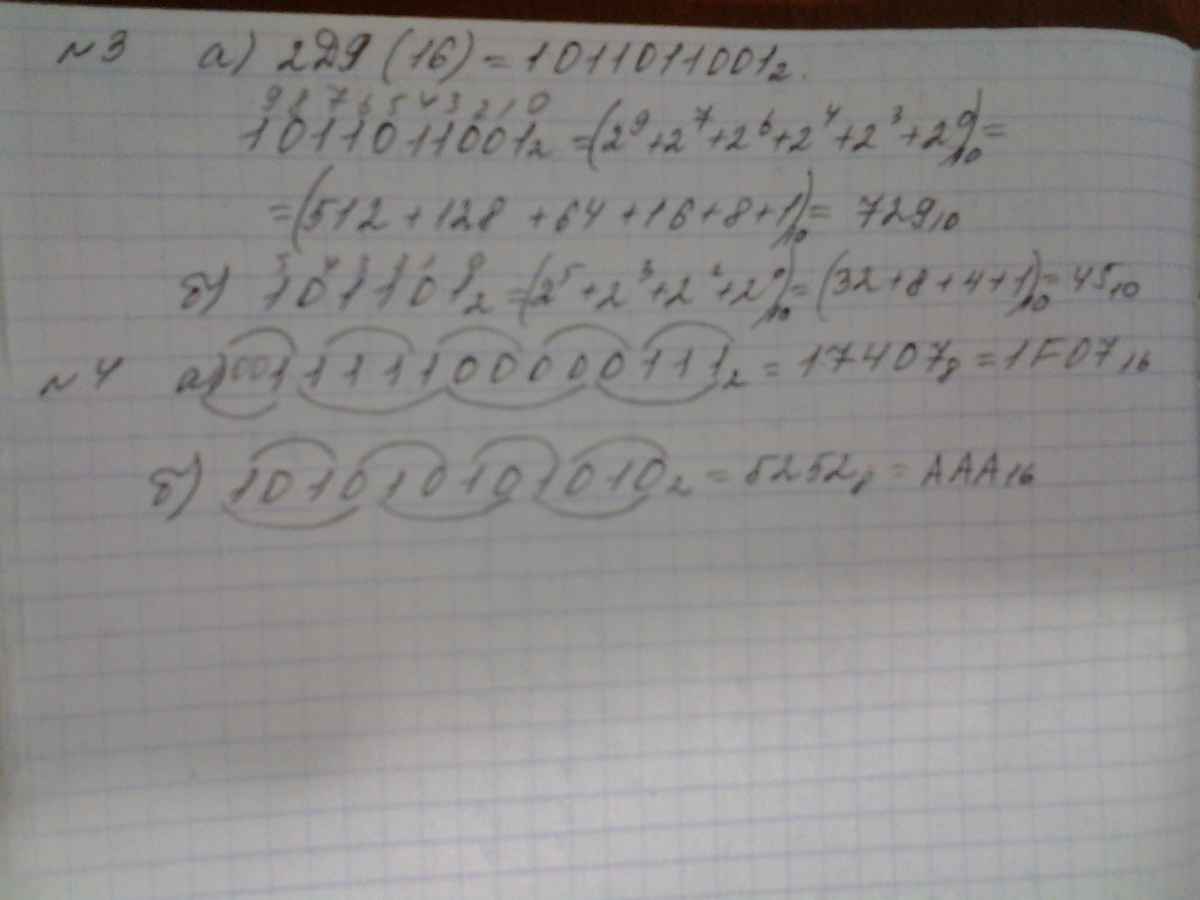 №3 а) 2D9 (16) = 1011011001₂.
9 8 7 6 5 4 3 2 1 0
1011011001₂ = (2⁹+2⁷+2⁶+2⁴+2³+2⁰)₁₀ =
= (512 + 128 + 64 + 16 + 8 + 1)₁₀ = 729₁₀
5 4 3 2 1 0
б) 101101₂ = (2⁵+2³+2²+2⁰)₁₀ = (32+8+4+1)₁₀ = 45₁₀
№4 а) 001111100000111₂ = 17407₈ = 1F07₁₆
б) 101010101010₂ = 5252₈ = AAA₁₆